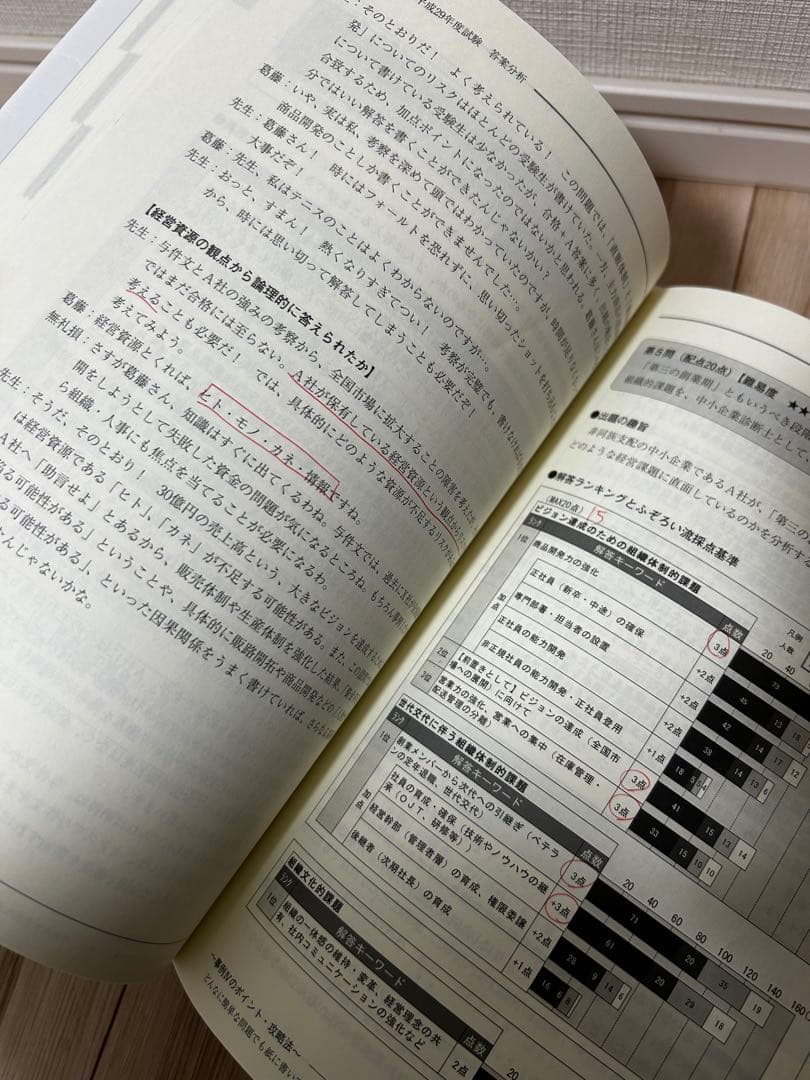 平成29年度試験 答案分析
：そのとおりだ！ よく考えられている！ この問題では、「直販
発」についてのリスクはほとんどの受験生が書けていた。一方、主力商品
について書けている受験生は少なかったが、合格＋A答案に多く、
合致するため、加点ポイントになったのではないかと思われる。葛藤さん
分ではいい解答を書くことができたんじゃないかい？
葛藤：いや、実は私、考察を深めて頭ではわかっていたのですが、時間が足りなく
商品開発のことしか書くことができませんでした…。
先生：葛藤さん！ 時にはフォールトを恐れずに、思い切ったショットを打た
大事だぞ！
葛藤：先生、私はテニスのことはよくわからないのですが…。
先生：おっと、すまん！ 熱くなりすぎてつい！ 考察が完璧でも、書けなければ
から、時には思い切って解答してしまうことも必要だぞ！
【経営資源の観点から論理的に答えられたか】
先生：与件文とA社の強みの考察から、全国市場に拡大することの障害を考え
ではまだ合格には至らない。A社が保有している経営資源という観点から
考えることも必要だ！ では、具体的にどのような資源が不足するリスク
考えてみよう。
葛藤：経営資源とくれば、ヒト・モノ・カネ・情報ですね。
無礼損：さすが葛藤さん、知識はすぐに出てくるわね。与件文では、過去に
開をしようとして失敗した資金の問題が気になるところね。もちろん事例
ら組織・人事にも焦点を当てることが必要になるわ。
先生：そうだ、そのとおり！ 30億円の売上高という、大きなビジョンを達成する
は経営資源である「ヒト」、「カネ」が不足する可能性がある。また、この設問
A社へ「助言せよ」とあるから、販売体制や生産体制を強化した結果、
る可能性がある」ということや、具体的に販路開拓や商品開発などの
る可能性がある」、といった因果関係をうまく書けていれば、さらなる
たんじゃないかな。
第5問（配点20点）【難易度 ★
「第三の創業期」ともいうべき段階
組織的課題を、中小企業診断士として、
●出題の趣旨
非同族支配の中小企業であるA社が、「第三の
どのような経営課題に直面しているのかを分析する
●解答ランキングとふぞろい流採点基準
（MAX20点） 15
ビジョン達成のための組織体制的課題
ランク 解答キーワード 点数
凡例
人数
20 40
1位 商品開発力の強化 3点 73
加点
正社員（新卒・中途）の確保 +2点 45 13
専門部署・担当者の設置 +2点 42 14
正社員の能力開発 +2点 38 14 17
非正規社員の能力開発・正社員登用 +1点 18 5
2位 【前置きとして】ビジョンの達成（全国市場への展開）に向けて 3点 41 15 13 14
3位 営業力の強化、営業への集中（在庫管理・配送管理の分離） 3点 33 15 10 10
世代交代に伴う組織体制的課題
ランク 解答キーワード 点数 20 40 60 80 100 120 140 160
1位 創業メンバーから次代への引継ぎ（ベテランの定年退職、世代交代） 3点 71 20 35 19
加点
社員の育成・確保（技術やノウハウの継承（OJT、研修等）） +3点 61 20 29 18
経営幹部（管理者層）の育成、権限委譲 +2点 28 9 14 6
後継者（次期社長）の育成 +1点 16 6 8
組織文化的課題
ランク 解答キーワード 点数 20 40 60 80
1位 組織の一体感の維持・変革、経営理念の共有、社内コミュニケーションの強化など 2点
～事例Ⅳのポイント・攻略法～
どんなに簡単な問題でも紙に書いて